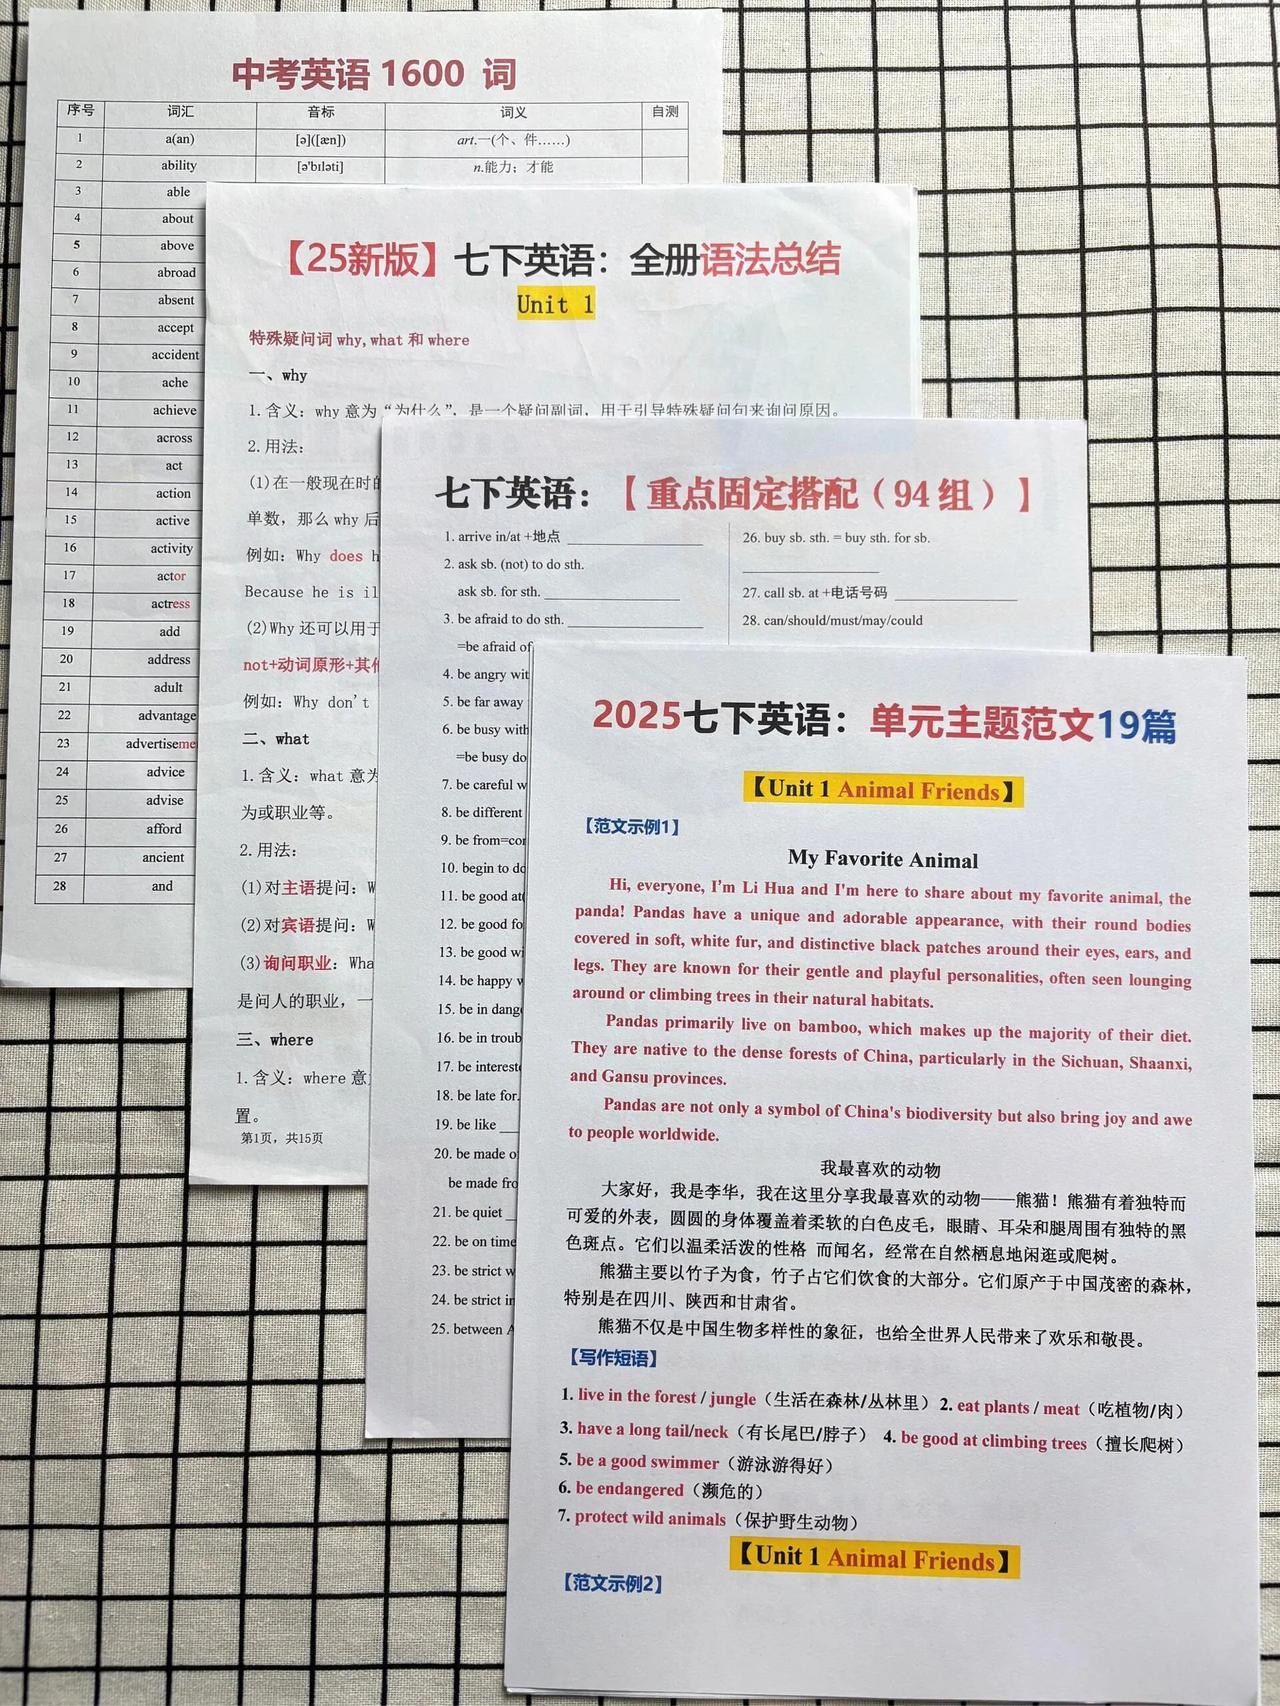 中考英语 1600 词
序号 词汇 音标 词义 自测
1 a(an) [ə]([æn]) art.一(个、件……)
2 ability [ə'bɪləti] n.能力；才能
3 able
4 about
5 above
6 abroad
7 absent
8 accept
9 accident
10 ache
11 achieve
12 across
13 act
14 action
15 active
16 activity
17 actor
18 actress
19 add
20 address
21 adult
22 advantage
23 advertiseme
24 advice
25 advise
26 afford
27 ancient
28 and
【25新版】七下英语：全册语法总结
Unit 1
特殊疑问词 why,what 和 where
一、why
1.含义：why 意为“为什么”，是一个疑问副词，用于引导特殊疑问句来询问原因。
2.用法：
(1)在一般现在时的
单数，那么 why 后
例如：Why does h
Because he is il
(2)Why 还可以用于
not+动词原形+其他
例如：Why don't
二、what
1.含义：what 意为
为或职业等。
2.用法：
(1)对主语提问：W
(2)对宾语提问：W
(3)询问职业：Wha
是问人的职业，一
三、where
1.含义：where 意
置。
第1页，共15页
七下英语：【重点固定搭配（94 组）】
1. arrive in/at +地点
2. ask sb. (not) to do sth.
ask sb. for sth.
3. be afraid to do sth.
=be afraid of
4. be angry wit
5. be far away
6. be busy with
=be busy do
7. be careful w
8. be different
9. be from=cor
10. begin to do
11. be good at
12. be good fo
13. be good wi
14. be happy w
15. be in dang
16. be in troub
17. be intereste
18. be late for.
19. be like
20. be made o
be made fro
21. be quiet
22. be on time
23. be strict w
24. be strict in
25. between A
26. buy sb. sth. = buy sth. for sb.
27. call sb. at +电话号码
28. can/should/must/may/could
2025七下英语：单元主题范文19篇
【Unit 1 Animal Friends】
【范文示例1】
My Favorite Animal
Hi, everyone, I'm Li Hua and I'm here to share about my favorite animal, the
panda! Pandas have a unique and adorable appearance, with their round bodies
covered in soft, white fur, and distinctive black patches around their eyes, ears, and
legs. They are known for their gentle and playful personalities, often seen lounging
around or climbing trees in their natural habitats.
Pandas primarily live on bamboo, which makes up the majority of their diet.
They are native to the dense forests of China, particularly in the Sichuan, Shaanxi,
and Gansu provinces.
Pandas are not only a symbol of China's biodiversity but also bring joy and awe
to people worldwide.
我最喜欢的动物
大家好，我是李华，我在这里分享我最喜欢的动物——熊猫！熊猫有着独特而
可爱的外表，圆圆的身体覆盖着柔软的白色皮毛，眼睛、耳朵和腿周围有独特的黑
色斑点。它们以温柔活泼的性格 而闻名，经常在自然栖息地闲逛或爬树。
熊猫主要以竹子为食，竹子占它们饮食的大部分。它们原产于中国茂密的森林，
特别是在四川、陕西和甘肃省。
熊猫不仅是中国生物多样性的象征，也给全世界人民带来了欢乐和敬畏。
【写作短语】
1. live in the forest / jungle（生活在森林/丛林里）2. eat plants / meat（吃植物/肉）
3. have a long tail/neck（有长尾巴/脖子） 4. be good at climbing trees（擅长爬树）
5. be a good swimmer（游泳游得好）
6. be endangered（濒危的）
7. protect wild animals（保护野生动物）
【Unit 1 Animal Friends】
【范文示例2】